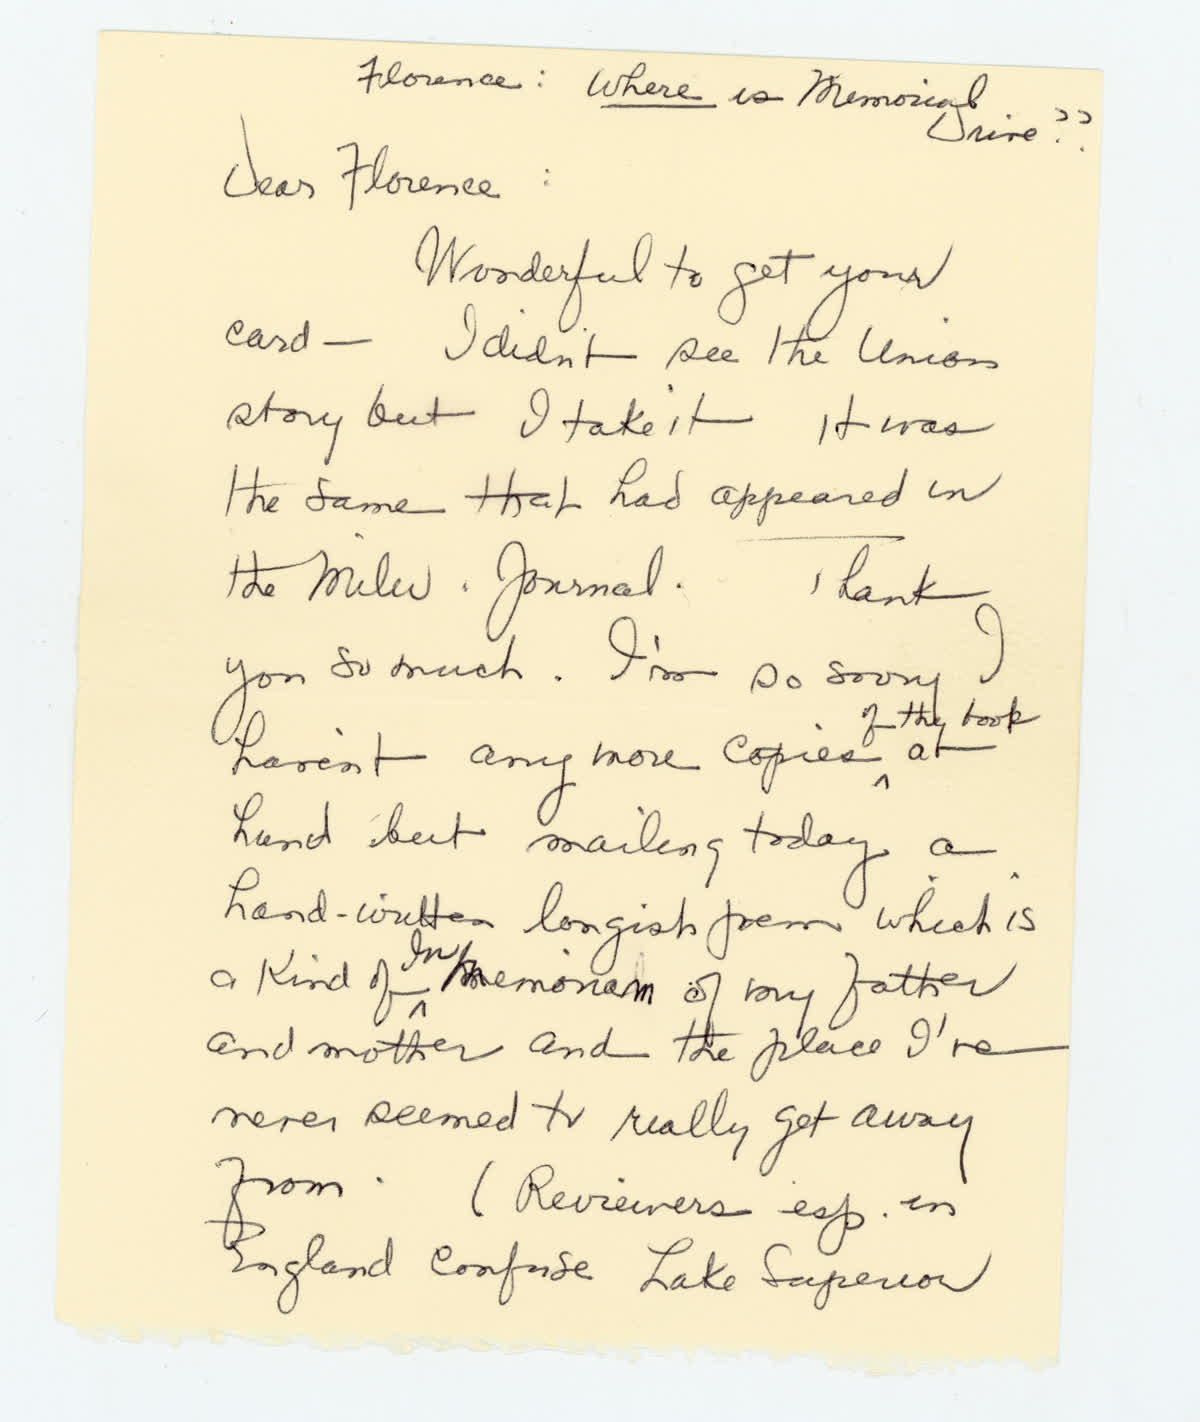 Florence: Where is Memorial
Drive??
Dear Florence:
Wonderful to get your
card— I didn't see the Union
story but I take it it was
the same that had appeared in
the Milw. Journal. Thank
you so much. I'm so sorry I
haven't any more copies of the book at
hand but mailing today a
hand-written longish poem which is
a kind of In Memoriam of my father
and mother and the place I've
never seemed to really get away
from. (Reviewers esp. in
England confuse Lake Superior